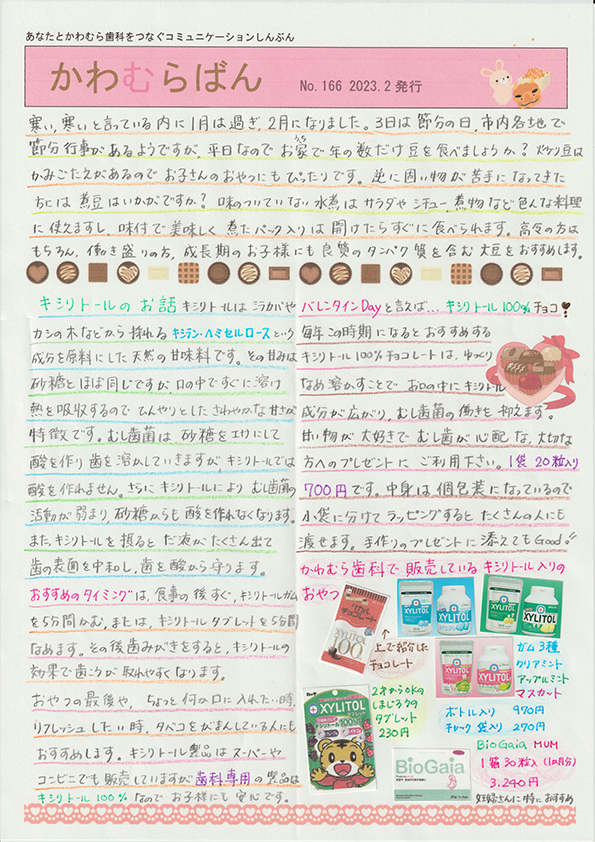 あなたとかわむら歯科をつなぐコミュニケーションしんぶん
かわむらばん
No.166 2023.2発行
寒い、寒いと言っている内に1月は過ぎ、2月になりました。3日は節分の日、市内各地で
節分行事があるようですが、平日なのでお家で年の数だけ豆を食べましょうか？炒り豆は
うち
かみごたえがあるのでお子さんのおやつにもぴったりです。逆に固い物が苦手になってきた
方には煮豆はいかがですか？味のついていない水煮はサラダやシチュー、煮物など色んな料理
に使えますし、味付で美味しく煮たパック入りは開けたらすぐに食べられます。高令の方は
もちろん、働き盛りの方、成長期のお子様にも良質のタンパク質を含む大豆をおすすめします。
キシリトールのお話 キシリトールはシラカバや
カシの木などから採れるキシラン・ヘミセルロースという
成分を原料にした天然の甘味料です。その甘みは
砂糖とほぼ同じですが、口の中ですぐに溶け
熱を吸収するのでひんやりとしたさわやかな甘さが
特徴です。むし歯菌は、砂糖をエサにして
酸を作り歯を溶かしていきますがキシリトールでは
酸を作れません。さらにキシリトールによりむし歯菌の
活動が弱まり、砂糖からも酸を作れなくなります。
また、キシリトールを摂るとだ液がたくさん出て
歯の表面を中和し、歯を酸から守ります。
おすすめのタイミングは、食事の後すぐ、キシリトールガム
を5分間かむ、または、キシリトールタブレットを5分間
なめます。その後歯みがきをすると、キシリトールの
効果で歯こうが取れやすくなります。
おやつの最後や、ちょっと何か口に入れたい時、
リフレッシュしたい時、タバコをがまんしている人にも
おすすめします。キシリトール製品はスーパーや
コンビニでも販売していますが歯科専用の製品は
キシリトール100%なのでお子様にも安心です。
バレンタインDayと言えば…キシリトール100%チョコ
毎年この時期になるとおすすめする
キシリトール100%チョコレートは、ゆっくり
なめ溶かすことでお口の中にキシリトール
成分が広がり、むし歯菌の働きを抑えます。
甘い物が大好きでむし歯が心配な、大切な
方へのプレゼントにご利用下さい。1袋20粒入り
700円です。中身は個包装になっているので
小袋に分けてラッピングするとたくさんの人にも
渡せます。手作りのプレゼントに添えてもGood!!
かわむら歯科で販売しているキシリトール入りの
おやつ
チョコレート
XYLITOL
100
↑
上で紹介した
チョコレート
XYLITOL
XYLITOL
XYLITOL
ガム3種
クリアミント
アップルミント
マスカット
ボトル入り 970円
チャック袋入り 270円
2才からOKの
しまじろうの
タブレット
230円
XYLITOL
BioGaia
BioGaia MUM
1箱30粒入(1ヵ月分)
3,240円
妊婦さんに特におすすめ